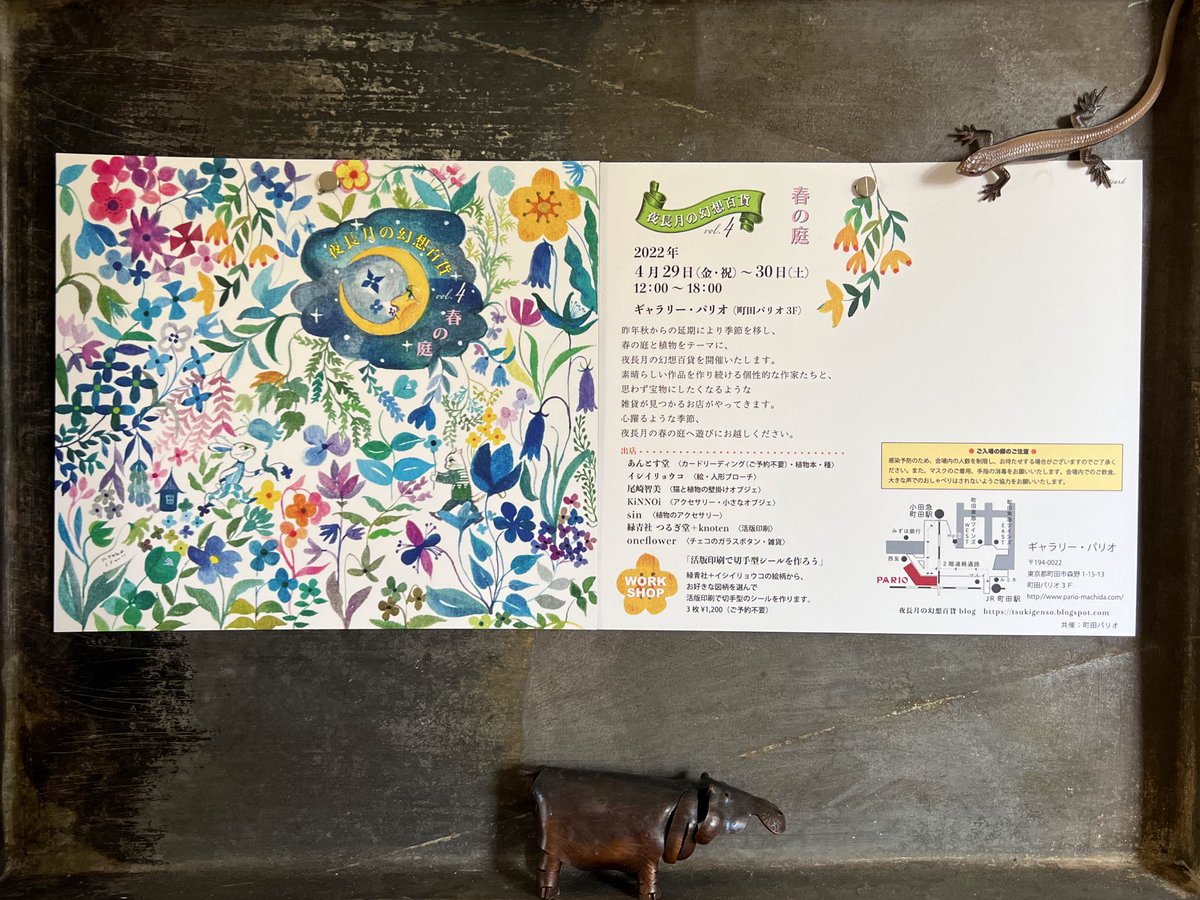 夜長月の幻想百貨
vol.4
春の庭
夜長月の幻想百貨
vol.4
春の庭
2022年
4月29日(金・祝)〜30日(土)
12:00〜18:00
ギャラリー・パリオ(町田パリオ3F)
昨年秋からの延期により季節を移し、
春の庭と植物をテーマに、
夜長月の幻想百貨を開催いたします。
素晴らしい作品を作り続ける個性的な作家たちと、
思わず宝物にしたくなるような
雑貨が見つかるお店がやってきます。
心躍るような季節、
夜長月の春の庭へ遊びにお越しください。
出店
あんとす堂 〈カードリーディング(ご予約不要)・植物本・種〉
イシイリョウコ 〈絵・人形ブローチ〉
尾崎智美 〈猫と植物の壁掛けオブジェ〉
KiNNOi 〈アクセサリー・小さなオブジェ〉
sin 〈植物のアクセサリー〉
緑青社 つるぎ堂+knoten 〈活版印刷〉
oneflower 〈チェコのガラスボタン・雑貨〉
WORK SHOP
「活版印刷で切手型シールを作ろう」
緑青社+イシイリョウコの絵柄から、
お好きな図柄を選んで
活版印刷で切手型のシールを作ります。
3枚¥1,200(ご予約不要)
ご入場の際のご注意
感染予防のため、会場内の人数を制限し、お待たせする場合がございますのでご了承く
ださい。また、マスクのご着用、手指の消毒をお願いいたします。会場内でのご飲食、
大きな声でのおしゃべりはされないようご協力をお願いいたします。
小田急
町田駅
町田東急ツインズ
WEST
町田東急ツインズ
EAST
みずほ銀行
西友
2階連絡通路
PARIO
マルイ
ルミネ
JR町田駅
ギャラリー・パリオ
〒194-0022
東京都町田市森野1-15-13
町田パリオ3F
http://www.pario-machida.com/
夜長月の幻想百貨 blog https://tsukigenso.blogspot.com
共催:町田パリオ